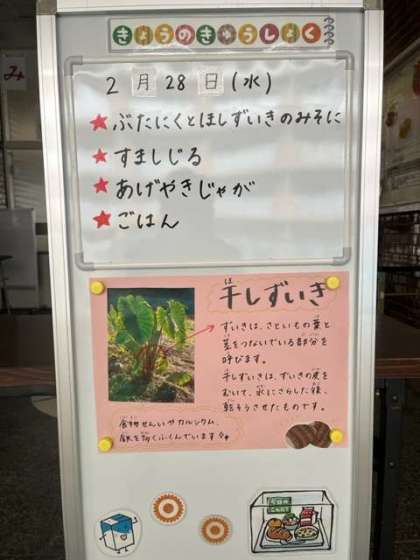 きょうのきゅうしょく
2月28日(水)
★ぶたにくとほしずいきのみそに
★すましじる
★あげやきじゃが
★ごはん
干しずいき
ずいきは、さといもの葉と
茎をつないでいる部分を
呼びます。
干しずいきは、ずいきの皮を
むいて、水にさらした後、
乾そうさせたものです。
食物せんいやカルシウム、
鉄を多くふくんでいます
み